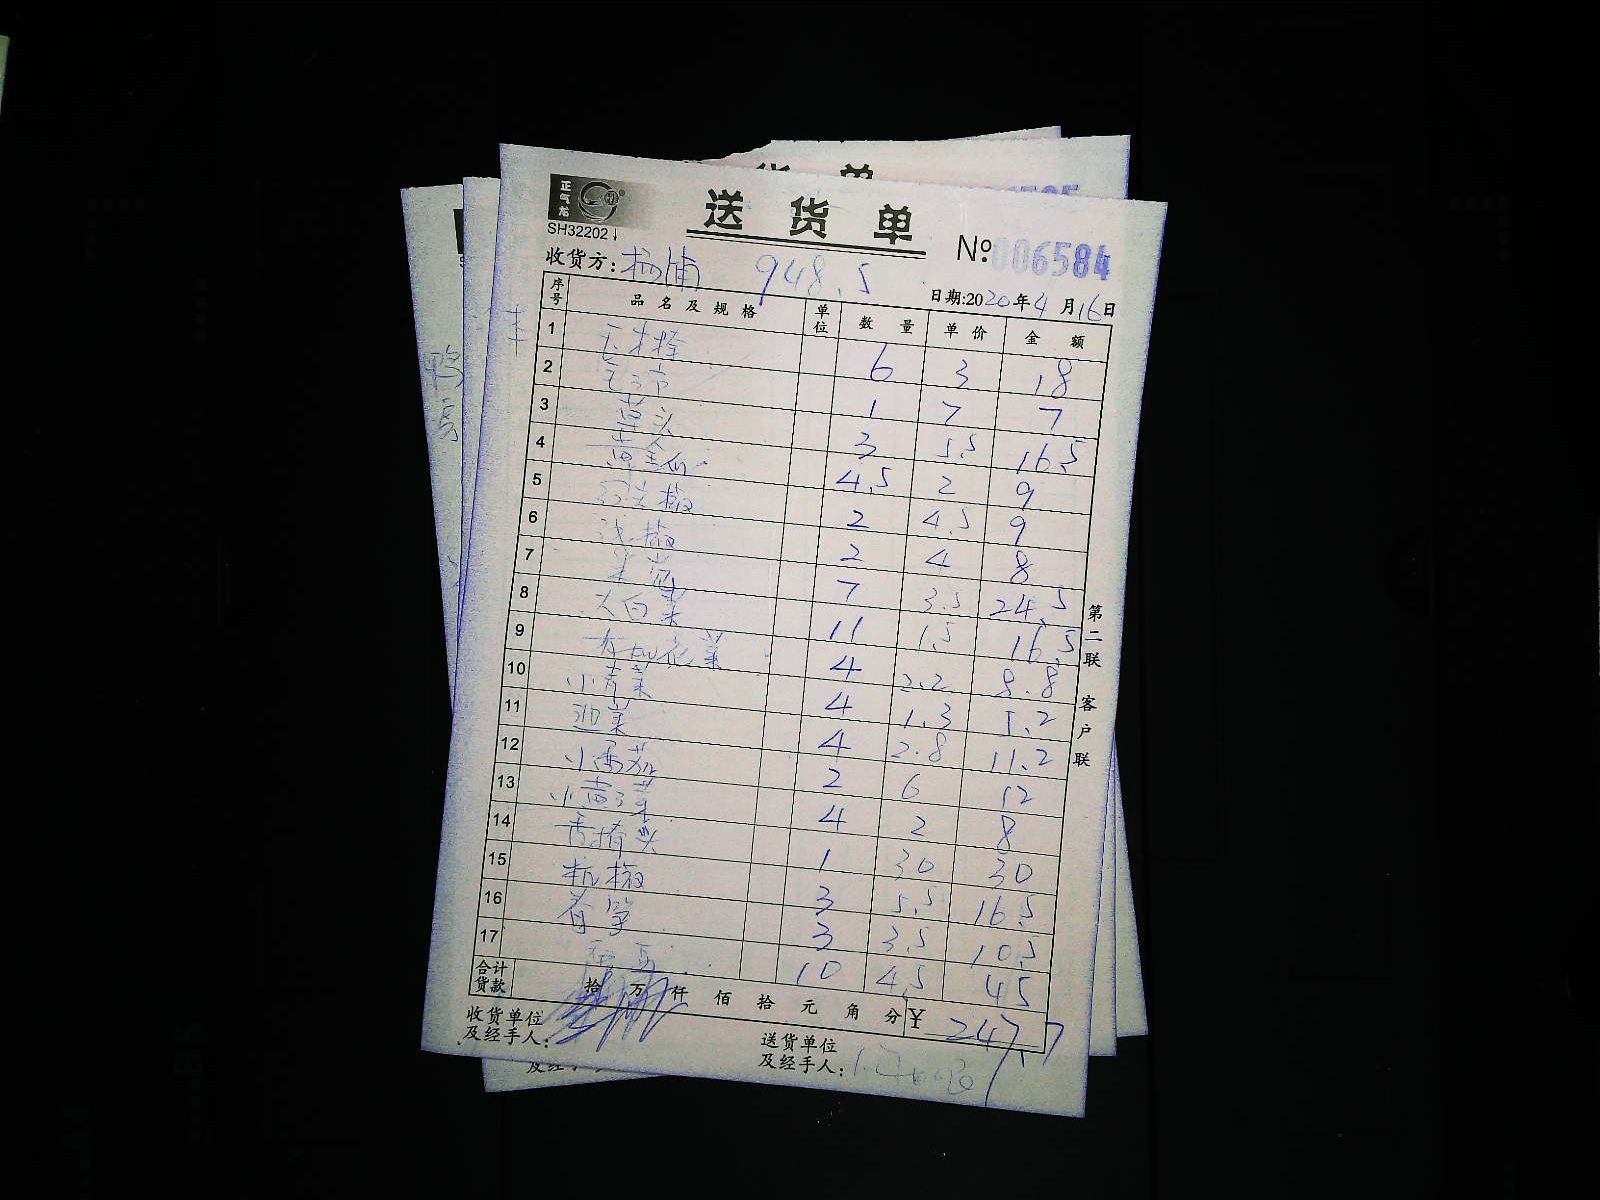 正气龙
送货单
SH32202
№:006584
收货方:杨浦 948.5
日期:2020年4月16日
序号 品名及规格 单位 数量 单价 金额
1 6 3 18
2 1 7 7
3 草头 3 5.5 16.5
4 黄金瓜 4.5 2 9
5 红尖椒 2 4.5 9
6 浅椒 2 4 8
7 7 3.5 24.5
8 大白菜 11 1.5 16.5
9 有机花菜 4 2.2 8.8
10 小青菜 4 1.3 5.2
11 4 2.8 11.2
12 小番茄 2 6 12
13 4 2 8
14 1 30 30
15 杭椒 3 5.5 16.5
16 春笋 3 3.5 10.5
17 10 4.5 45
合计货款 拾 万 仟 佰 拾 元 角 分 ¥ 247.7
收货单位及经手人:
送货单位及经手人:
第二联 客户联